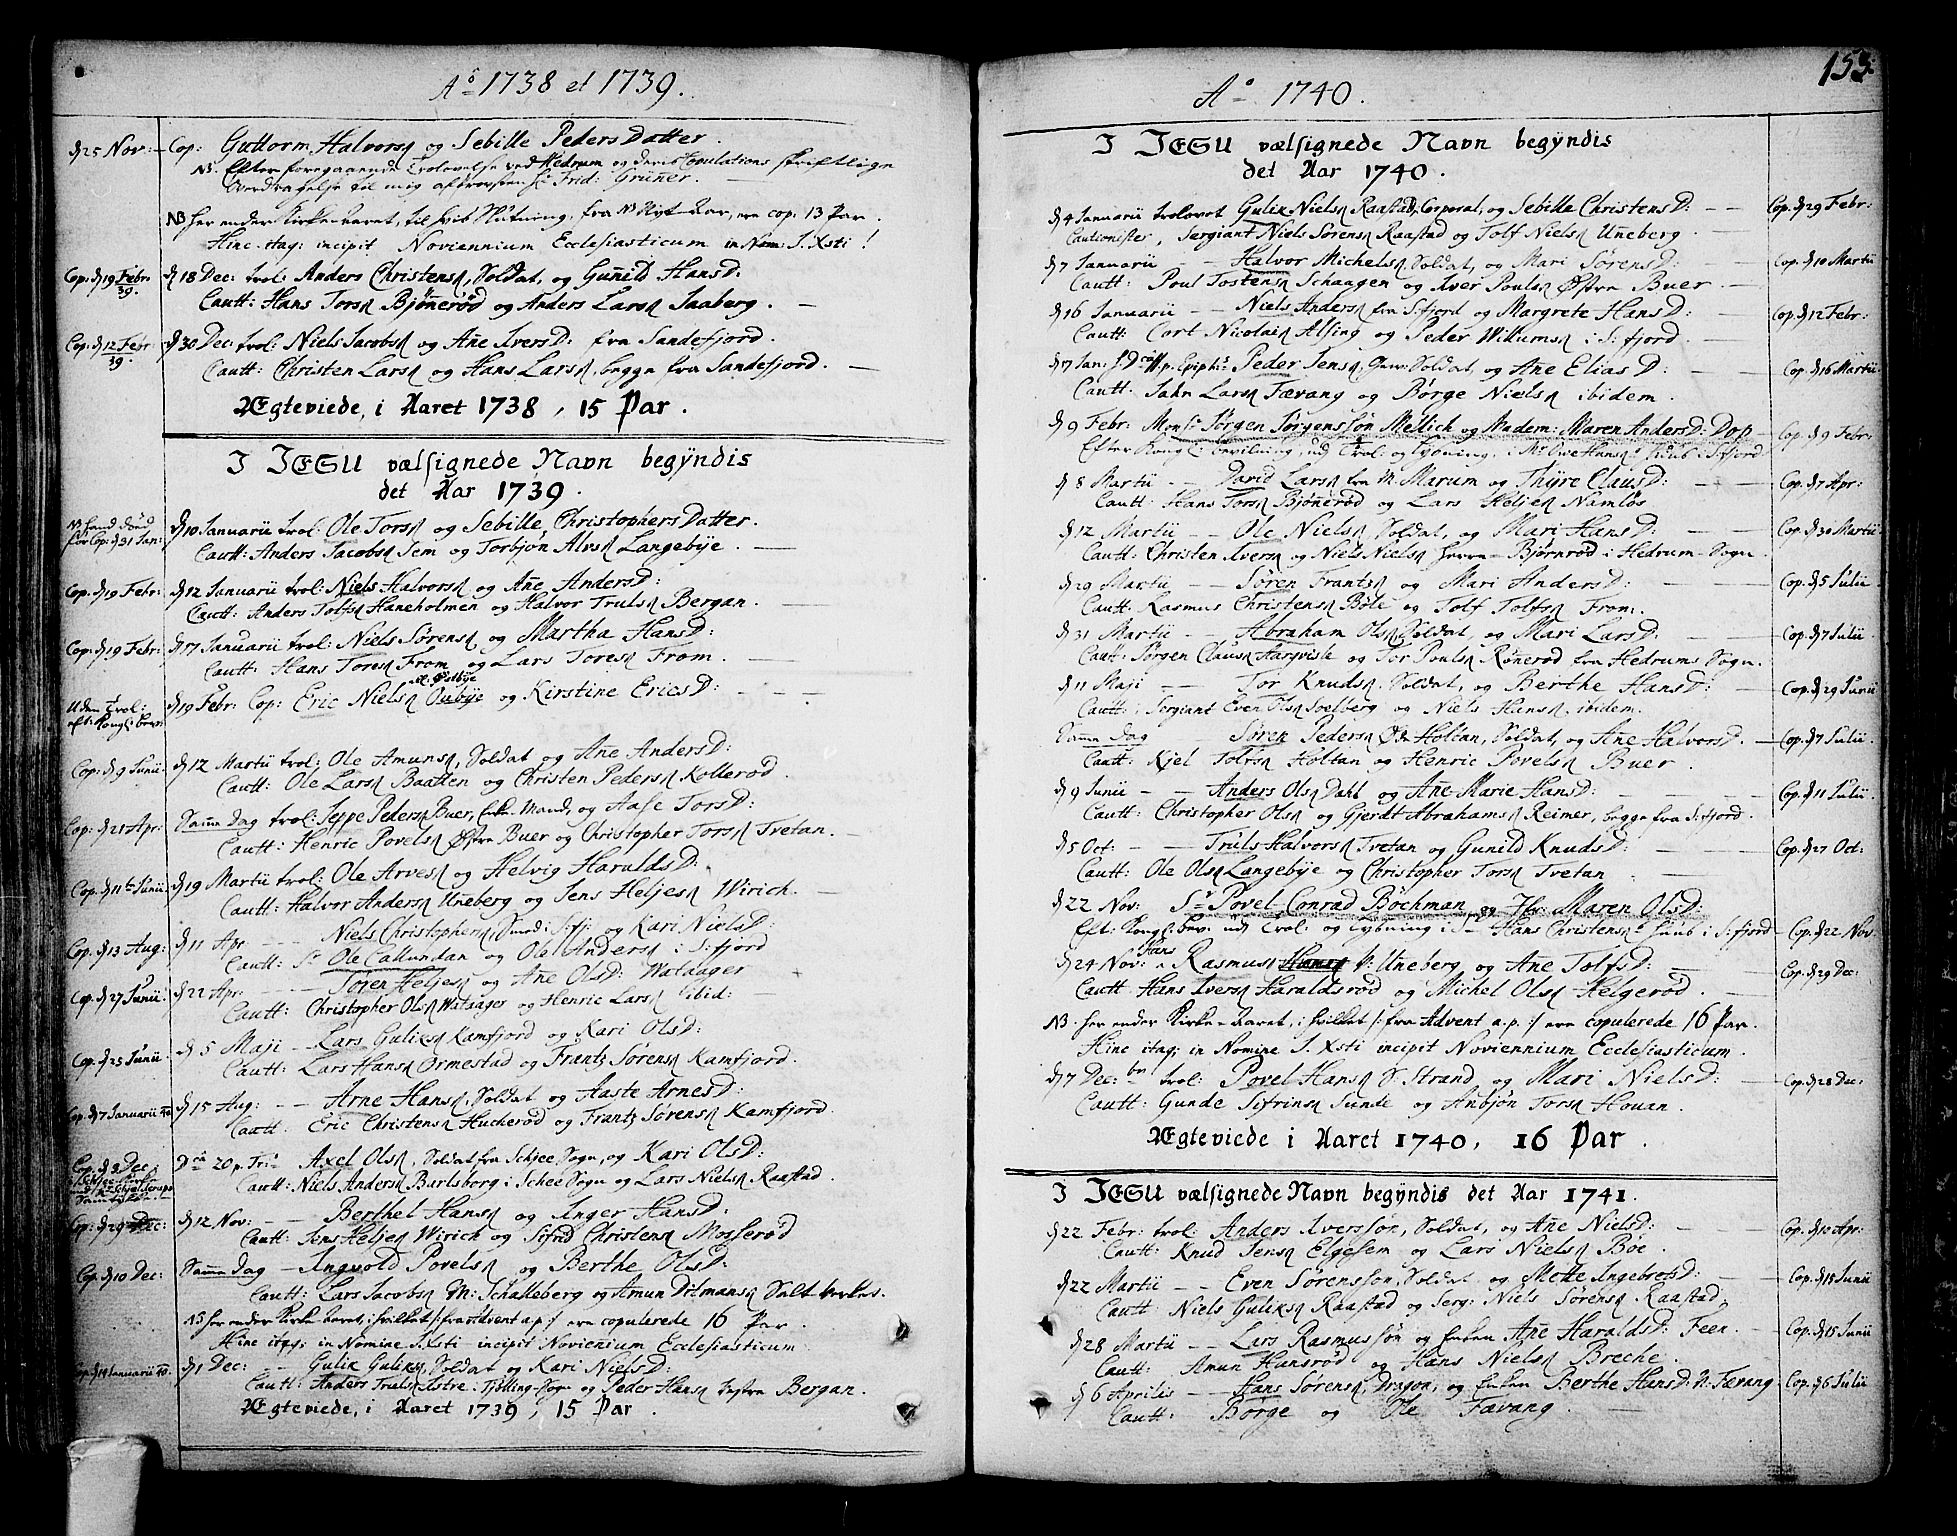 Aõ 1738 et 1739.
d 25 Nov: Cop: Guttorm Halvorsn og Sebille Peders Datter.
NB. Efter foregaaende Trolovelse ved Hedrum og deris Copulations skriftlige
Overdragelse til mig af Provsten Hr Frid: Grüner.
NB her ender Kirke-Aaret, til hvis Slutning, fra Nyt-Aar, ere cop: 13 Par.
Hinc itaq: incipit Noviennium Ecclesiasticum in Nom: J. Xsti!
Cop: d 19 Febr: 39. d 18 Dec: trol: Anders Christensn, Soldat, og Guñild HansD:
Cautt: Hans Torsn Bjönerød og Anders Larsn Saaberg.
Cop: d 12 Febr: 39. d 30 Dec: trol: Niels Jacobsn og Añe IversD: fra Sandefjord.
Cautt: Christen Larsn og Hans Larsn, begge fra Sandefjord.
Ægteviede, i Aaret 1738, 15 Par.
I JESU velsignede Navn begÿndis
det Aar 1739.
NB hand döde för Cop: d 31 Jan: d 10 Januarii trol: Ole Torsn og Sebille Christophers Datter.
Cautt: Anders Jacobsn Sem og Torbjön Alvsn Langebÿe.
Cop: d 19 Febr: d 12 Januarii trol: Niels Halvorsn og Añe AndersD:
Cautt: Anders Tolfsn Haneholmen og Halvor Trulsn Bergan.
Cop: d 19 Febr: d 17 Januarii trol: Niels Sörensn og Martha HansD:
Cautt: Hans Toresn From og Lars Toresn From.
Uden Trol: eft: Kongl: bev: d 19 Febr: Cop: Eric Nielsn Østbÿe og Kirstine EricsD:
Cop: d 9 Junii. d 12 Martii trol: Ole Amunsn, Soldat og Añe AndersD:
Cautt: Ole Larsn Baatten og Christen Pedersn Kollerød.
Cop: d 21 Apr: Saṁe Dag trol: Jeppe Pedersn Buer, Enke-Mand, og Aase TorsD:
Cautt: Henric Povelsn Østre Buer og Christopher Torsn Tvetan.
Cop. d 11te Junii. d 19 Martii trol: Ole Arvesn og Helvig HaraldsD:
Cautt: Halvor Andersn Uneberg og Jens Heljesn Wirich.
Cop: d 13 Aug: d 11 Apr - - Niels Christophersn, Smed i S: fj: og Kari NielsD:
Cautt: Sr Ole Callundan og Ole Andersn i S: fjord
Cop: d 27 Junii. d 22 Apr: - - Toren Heljesn og Añe OlsD: Wataager
Cautt: Christopher Olsn Wataager og Henric Larsn ibid:
Cop: d 25 Junii. d 5 Maji - Lars Guliksn Kamfjord og Kari OlsD:
Cautt: Lars Hansn Ormestad og Frantz Sörensn Kamfjord.
Cop: d 7 Januarii 40 d 15 Aug: - Arne Hansn, Soldat og Aaste ArnesD:
Cautt: Eric Christensn Hucherød og Frantz Sörensn Kamfjord.
Cop. d 3 Dec: Dca 20 p. Tri: Axel Olsn, Soldat fra Schjee Sogn, og Kari OlsD:
Cautt: Niels Andersn Barlsborg i Schee Sogn og Lars Nielsn Raastad
Cop: d 29 Dec: d 12 Nov: - - Berthel Hansn og Inger HansD:
Cautt: Jens Heljesn Wirich og Sifrid Christensn Mosserød
Cop: d 10 Dec: Saṁe Dag - Ingvold Povelsn og Berthe OlsD:
Cautt: Lars Jacobsn M: Schalleberg og Amun Ditmansn Saltverket.
NB her ender Kirke-Aaret, i hvilket /: fra Advent a.p: / ere copulerede 16 Par.
Hinc itaq: in Nomine J. Xsti incipit Noviennium Ecclesiasticum
Cop: d 14 Januarii 40. d 1 Dec: - - Gulik Guliksn, Soldat og Kari NielsD:
Cautt: Anders Trulsn Istre i Tjölling-Sogn og Peder Hansn Vestre Bergan.
Ægteviede, i Aaret 1739, 15 Par.
153.
Aõ 1740.
I JESU velsignede Navn begÿndis
det Aar 1740.
d 4 Januarii trolovet Gulik Nielsn Raastad, Corporal, og Sebille ChristensD: - - Cop. d 29 Febr:
Cautionister, Sergiant Niels Sörensn Raastad og Tolf Nielsn Uneberg.
d 7 Januarii - - Halvor Michelsn, Soldat, og Mari SörensD: Cop: d 10 Martii
Cautt: Poul Tostensn Schaagen og Iver Poulsn Østre Buer.
d 16 Januarii - - Niels Andersn fra S: fjord og Margrete HansD: Cop: d 12 Febr:
Cautt: Cort Nicolai Alsing og Peder Willumsn i S: fjord.
d 17 Jan: Dca II. p. Epiph: Peder Jensn, Gev: Soldat og Añe EliasD: Cop: d 16 Martii
Cautt: Jahn Larsn Fævang og Börge Nielsn ibidem.
d 9 Febr: Monsr Jörgen Jörgenssön Mellich og Madem: Maren AndersD: Dorp Cop: d 9 Febr:
Efter Kongl: bevilning, ud Trol: og Lÿsning, i Mr Ove Hans: huus i S: fjord
d 8 Martii - David Larsn fra M. Marum og Thÿre ClausD: Cop: d 7 Apr:
Cautt: Hans Torsn Bjönerød og Lars Heljesn Namløs
d 12 Martii - - Ole Nielsn Soldat, og Mari HansD: Cop: d 30 Martii
Cautt: Christen Iversn og Niels Nielsn Bjørnrød i Hedrum-Sogn.
d 29 Martii - Sören Frantsn og Mari AndersD: Cop: d 5 Julii
Cautt: Rasmus Christensn Böle og Tolf Tolfsn From.
d 31 Martii - - Abraham Olsn Soldat, og Mari LarsD: Cop: d 7 Julii
Cautt: Jörgen Clausn Hasqvisle og Tor Poulsn Rönerød fra Hedrums Sogn.
d 11 Maji - - Tor Knudsn, Soldat, og Berthe HansD: Cop: d 29 Junii
Cautt: Sergiant Even Olsn Soelberg og Niels Hansn ibidem.
Saṁe Dag - Sören Pedersn Holtan, Soldat, og Añe HalvorsD. Cop: d 7 Julii
Cautt: Kjel Tolfsn Holtan og Henric Povelsn Buer.
d 9 Junii - - Anders Olsn Dahl og Añe Marie HansD: Cop: d 11 Julii
Cautt: Christopher Olsn og Gjerdt Abrahamsn Reimer, begge fra S: fjord.
d 5 Oct: - - Truls Halvorsn Tvetan og Gunild KnudsD: Cop: d 27 Oct:
Cautt: Ole Olsn Langebÿe og Christopher Torsn Tvetan
d 22 Nov: Sr Povel Conrad Böchman og Maren OlsD:
Eft: Kongl: bev: ud Trol: og Lÿsning i Sr Hans Christens: huus i S: fjord Cop: d 22 Nov:
d 24 Nov: - Rasmus Hans V: Uneberg og Añe TolfsD: Cop: d 29 Dec:
Cautt: Hans Iversn Haraldsrød og Michel Olsn Helgerød.
NB. her ender Kirke-Aaret, i hvilket /: fra Advent a.p: / ere copulerede 16 Par.
Hinc itaq: in Nomine J. Xsti incipit Noviennium Ecclesiasticum.
d 7 Decbr: trol: Povel Hansn S. Strand og Mari NielsD: Cop: d 28 Dec:
Cautt: Gunde Sifrinsn Sunde og Anbjön Torsn Hovan.
Ægteviede i Aaret 1740, 16 Par.
I JESU velsignede Navn begÿndis det Aar 1741.
d 22 Febr: trol: Anders Iverssön, Soldat, og Añe NielsD: Cop: d 10 Apr:
Cautt: Knud Jensn Elgesem og Lars Nielsn Böe.
d 22 Martii - - Even Sörenssön, Soldat og Mette IngebretsD: Cop: d 18 Junii
Cautt: Niels Guliksn Raastad og Serg: Niels Sörensn Raastad,
d 28 Martii - Lars Rasmussön og Enken Añe HaraldsD: Feen Cop: d 15 Junii
Cautt: Amun Hansrød og Hans Nielsn Breche.
d 6 Aprilis - - Hans Sörensn, Dragon, og Enken Berthe HansD. N. Fævang Cop: d 6 Julii
Cautt: Börge og Ole Fævang.